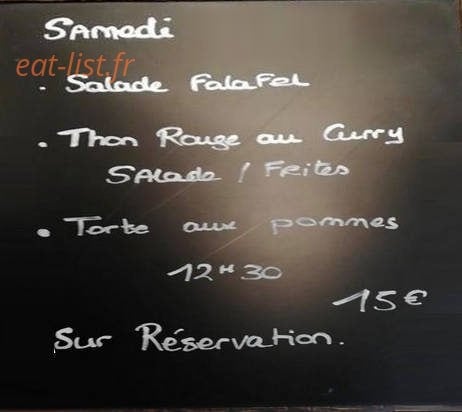 Samedi
eat-list.fr
• Salade Falafel
• Thon Rouge au Curry
Salade / Frites
• Tarte aux pommes
12H30
15€
Sur Réservation.